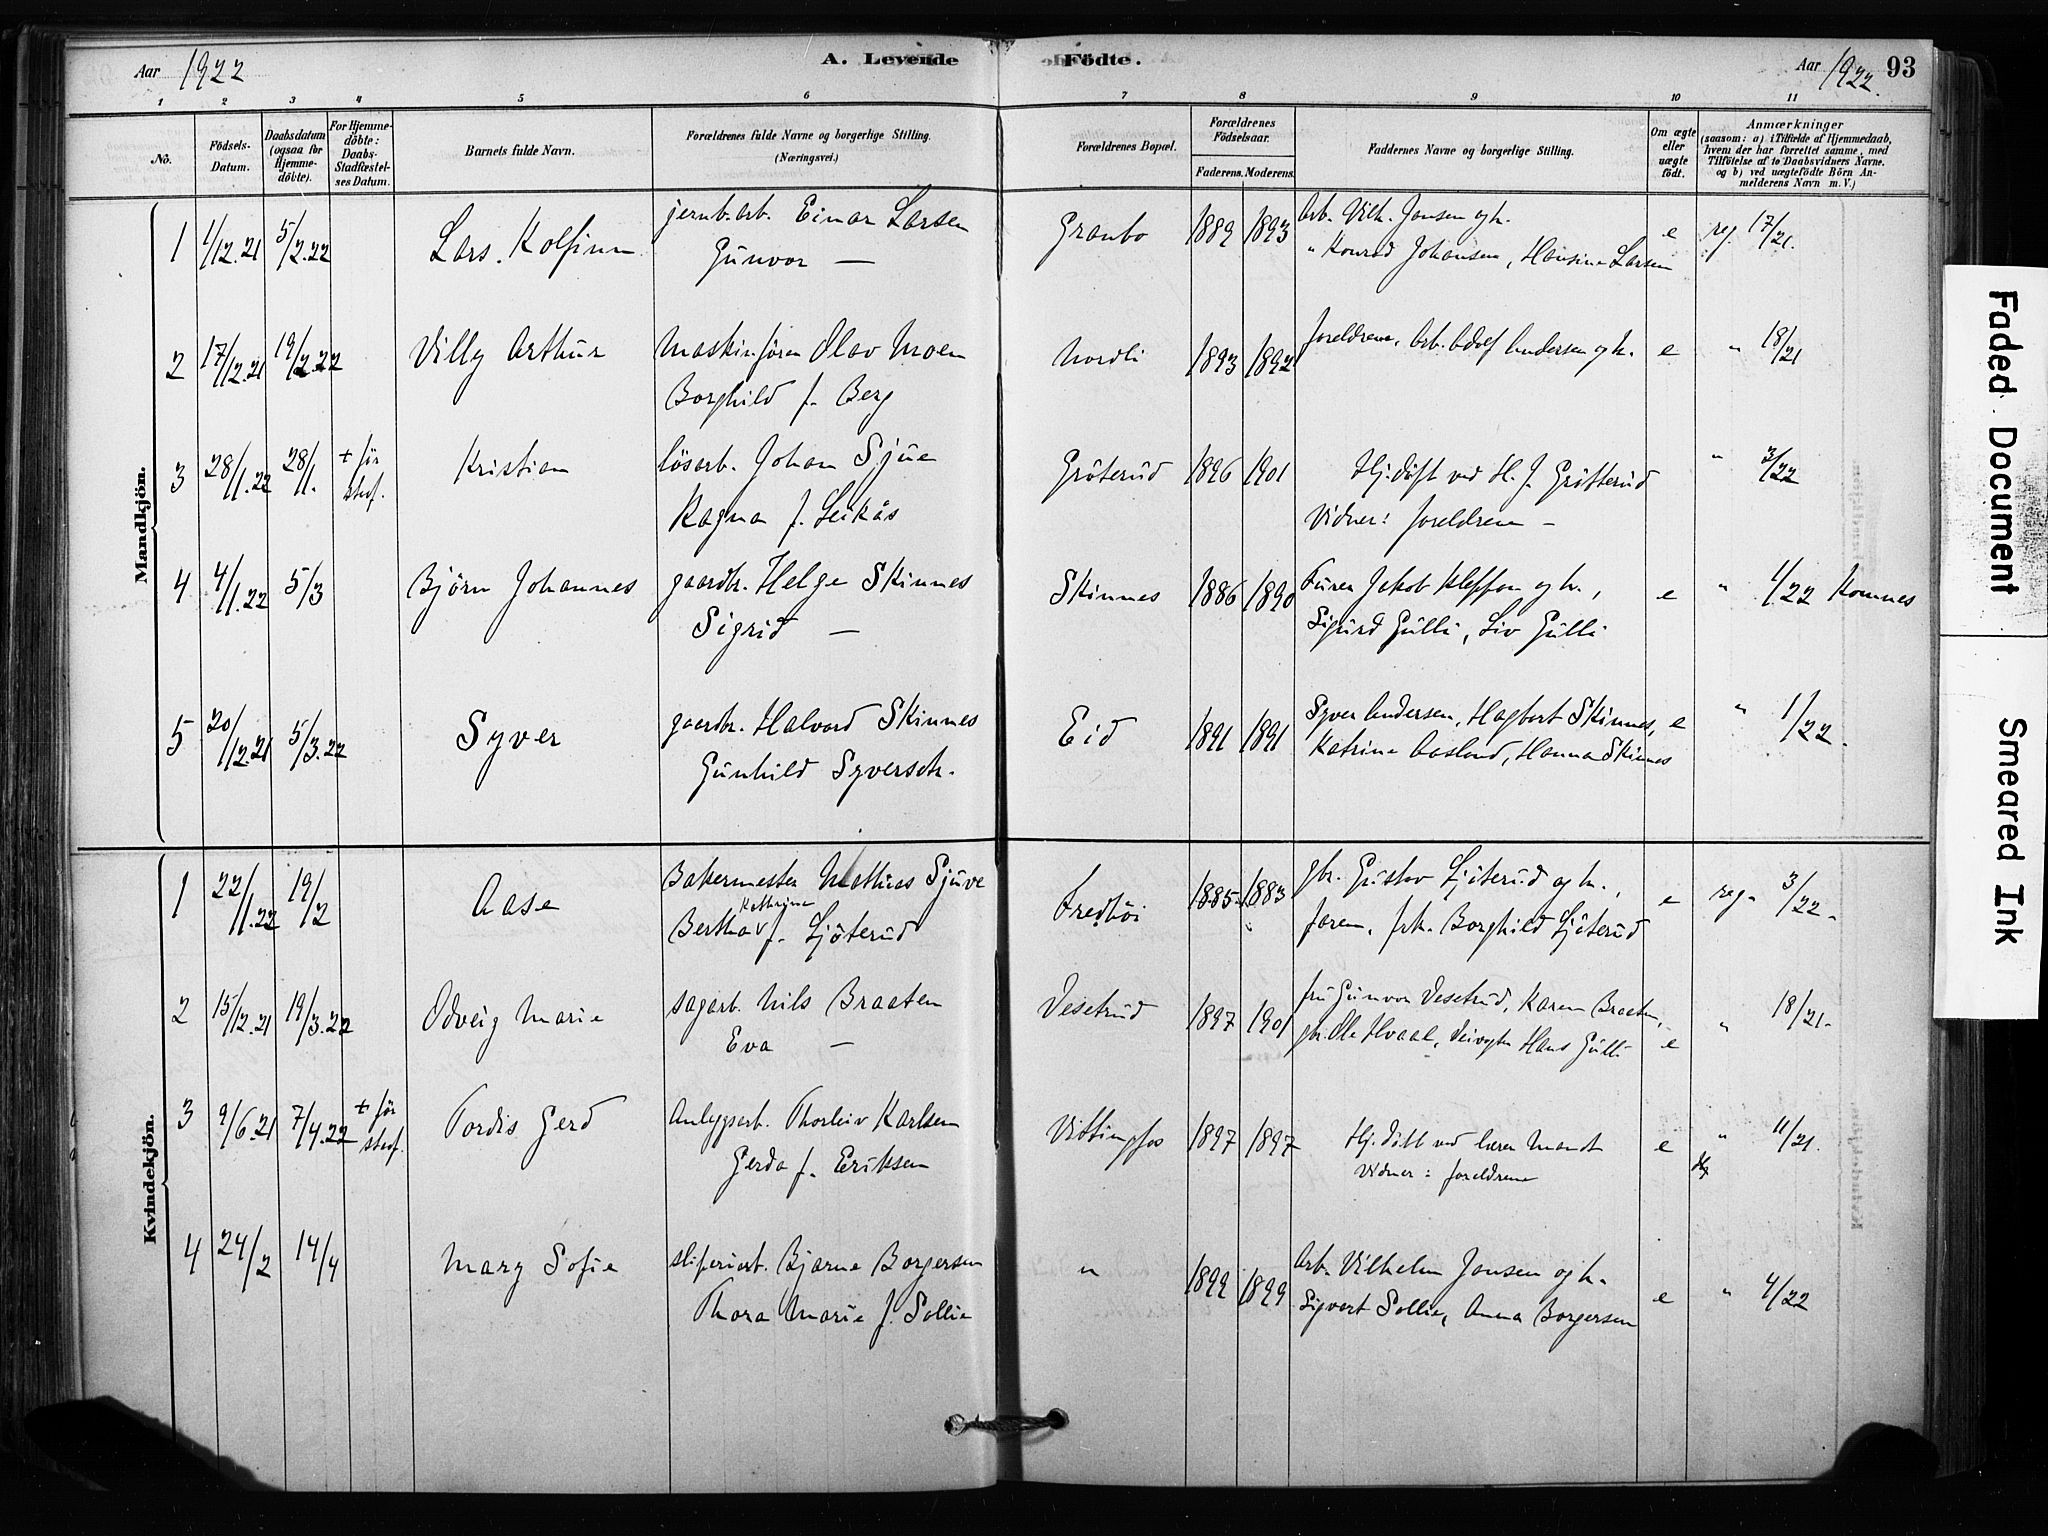 Aar 1922
A. Levende Födte.
Aar 1922. 93
1 2 3 4 5 6 7 8 9 10 11
No.
Födsels-Datum.
Daabsdatum (ogsaa for Hjemme-döbte).
For Hjemme-döbte: Daabs-Stadfæstel-ses Datum.
Barnets fulde Navn.
Forældrenes fulde Navne og borgerlige Stilling. (Næringsvei.)
Forældrenes Bopæl.
Forældrenes Födselsaar.
Faderens. Moderens.
Faddernes Navne og borgerlige Stilling.
Om ægte eller uægte födt.
Anmærkninger
(saasom: a) i Tilfælde af Hjemmedaab,
hvem der har forrettet samme, med
Tilföielse af to Daabsvidners Navne.
og b) ved uægtefödte Börn An-
melderens Navn m. V.)
Mandkjön.
1 1/12.21 5/2.22 Lars Kolfinn jernb.arb. Einar Larsen Granbo 1889 1893 Arb. Vilh. Jansen og h. e reg. 17/21.
Gunvor — " Konrad Johansen, Hansine Larsen
2 17/12.21 19/2.22 Villy Arthur Maskinfören Olav Moen Nordli 1893 1892 foreldrene, Arb. Adolf Andersen og h. e " 18/21
Borghild f. Berg
3 28/1.22 28/1. + för stef. Kristian lösarb. Johan Sjue Gröterud 1896 1901 Hj.döpt ved H. J. Grötterud " 3/22
Ragna f. Leikås Vidner: foreldrene —
4 4/1.22 5/3 Björn Johannes gaardbr. Helge Skinnes Skinnes 1886 1890 Furer Jakob Kleppen og h., e " 1/22 Komnes
Sigrid — Sigurd Gulli, Liv Gulli
5 20/12.21 5/3.22 Syver gaardbr. Halvard Skinnes Eid 1891 1891 Syver Andersen, Hagbart Skinnes, e " 1/22.
Gunhild Syversdtr. Katrine Aasland, Hanna Skinnes
Kvindekjön.
1 22/1.22 19/2 Aase Bakermester Mathias Sjuve Fredhöi 1885 1883 gbr. Gustav Ljöterud og h., e reg. 3/22.
Kathrine
Bertha v f. Ljöterud faren, frk. Borghild Ljöterud
2 15/12.21 19/3.22 Odveig Marie sagarb. Nils Braaten Vesetrud 1897 1901 fru Gunvor Vesetrud, Karen Braaten, " 18/21.
Eva — gbr. Ole Hvaal, Veivogter Hans Gulli e
3 9/6.21 7/4.22 + för stef. Tordis Gerd Anlegsarb. Thorleiv Karlsen Vittingfos 1897 1897 Hj.döbt ved lærer Mandt e " 11/21.
Gerda f. Eriksen Vidner: foreldrene
4 24/2 14/4 Mary Sofie sliperiarb. Bjarne Borgersen " 1899 1899 Arb. Vilhelm Jansen og h. e " 4/22
Thora Marie f. Sollie Sigvart Sollie, Anna Borgersen
Faded Document
Smeared Ink